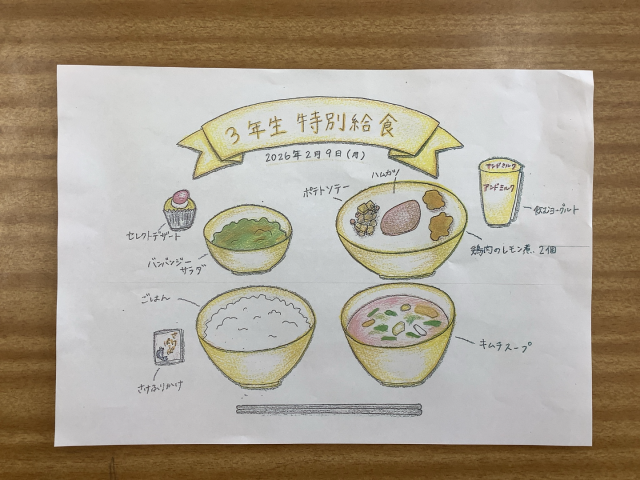 3年生 特別給食
2026年2月9日(月)
ハムカツ
ポテトソテー
アンデミルク
アンデミルク
飲むヨーグルト
セレクトデザート
バンバンジー
サラダ
鶏肉のレモン煮. 2個
ごはん
キムチスープ
さけふりかけ